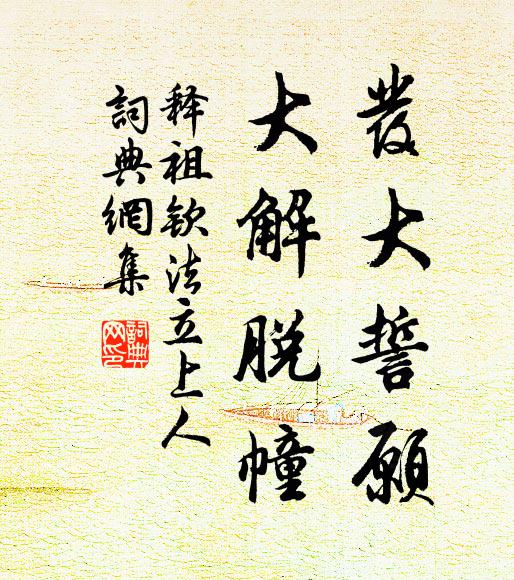 發大誓願
大解脱幢
释祖钦法立上人
詞典網集
詞典
网印